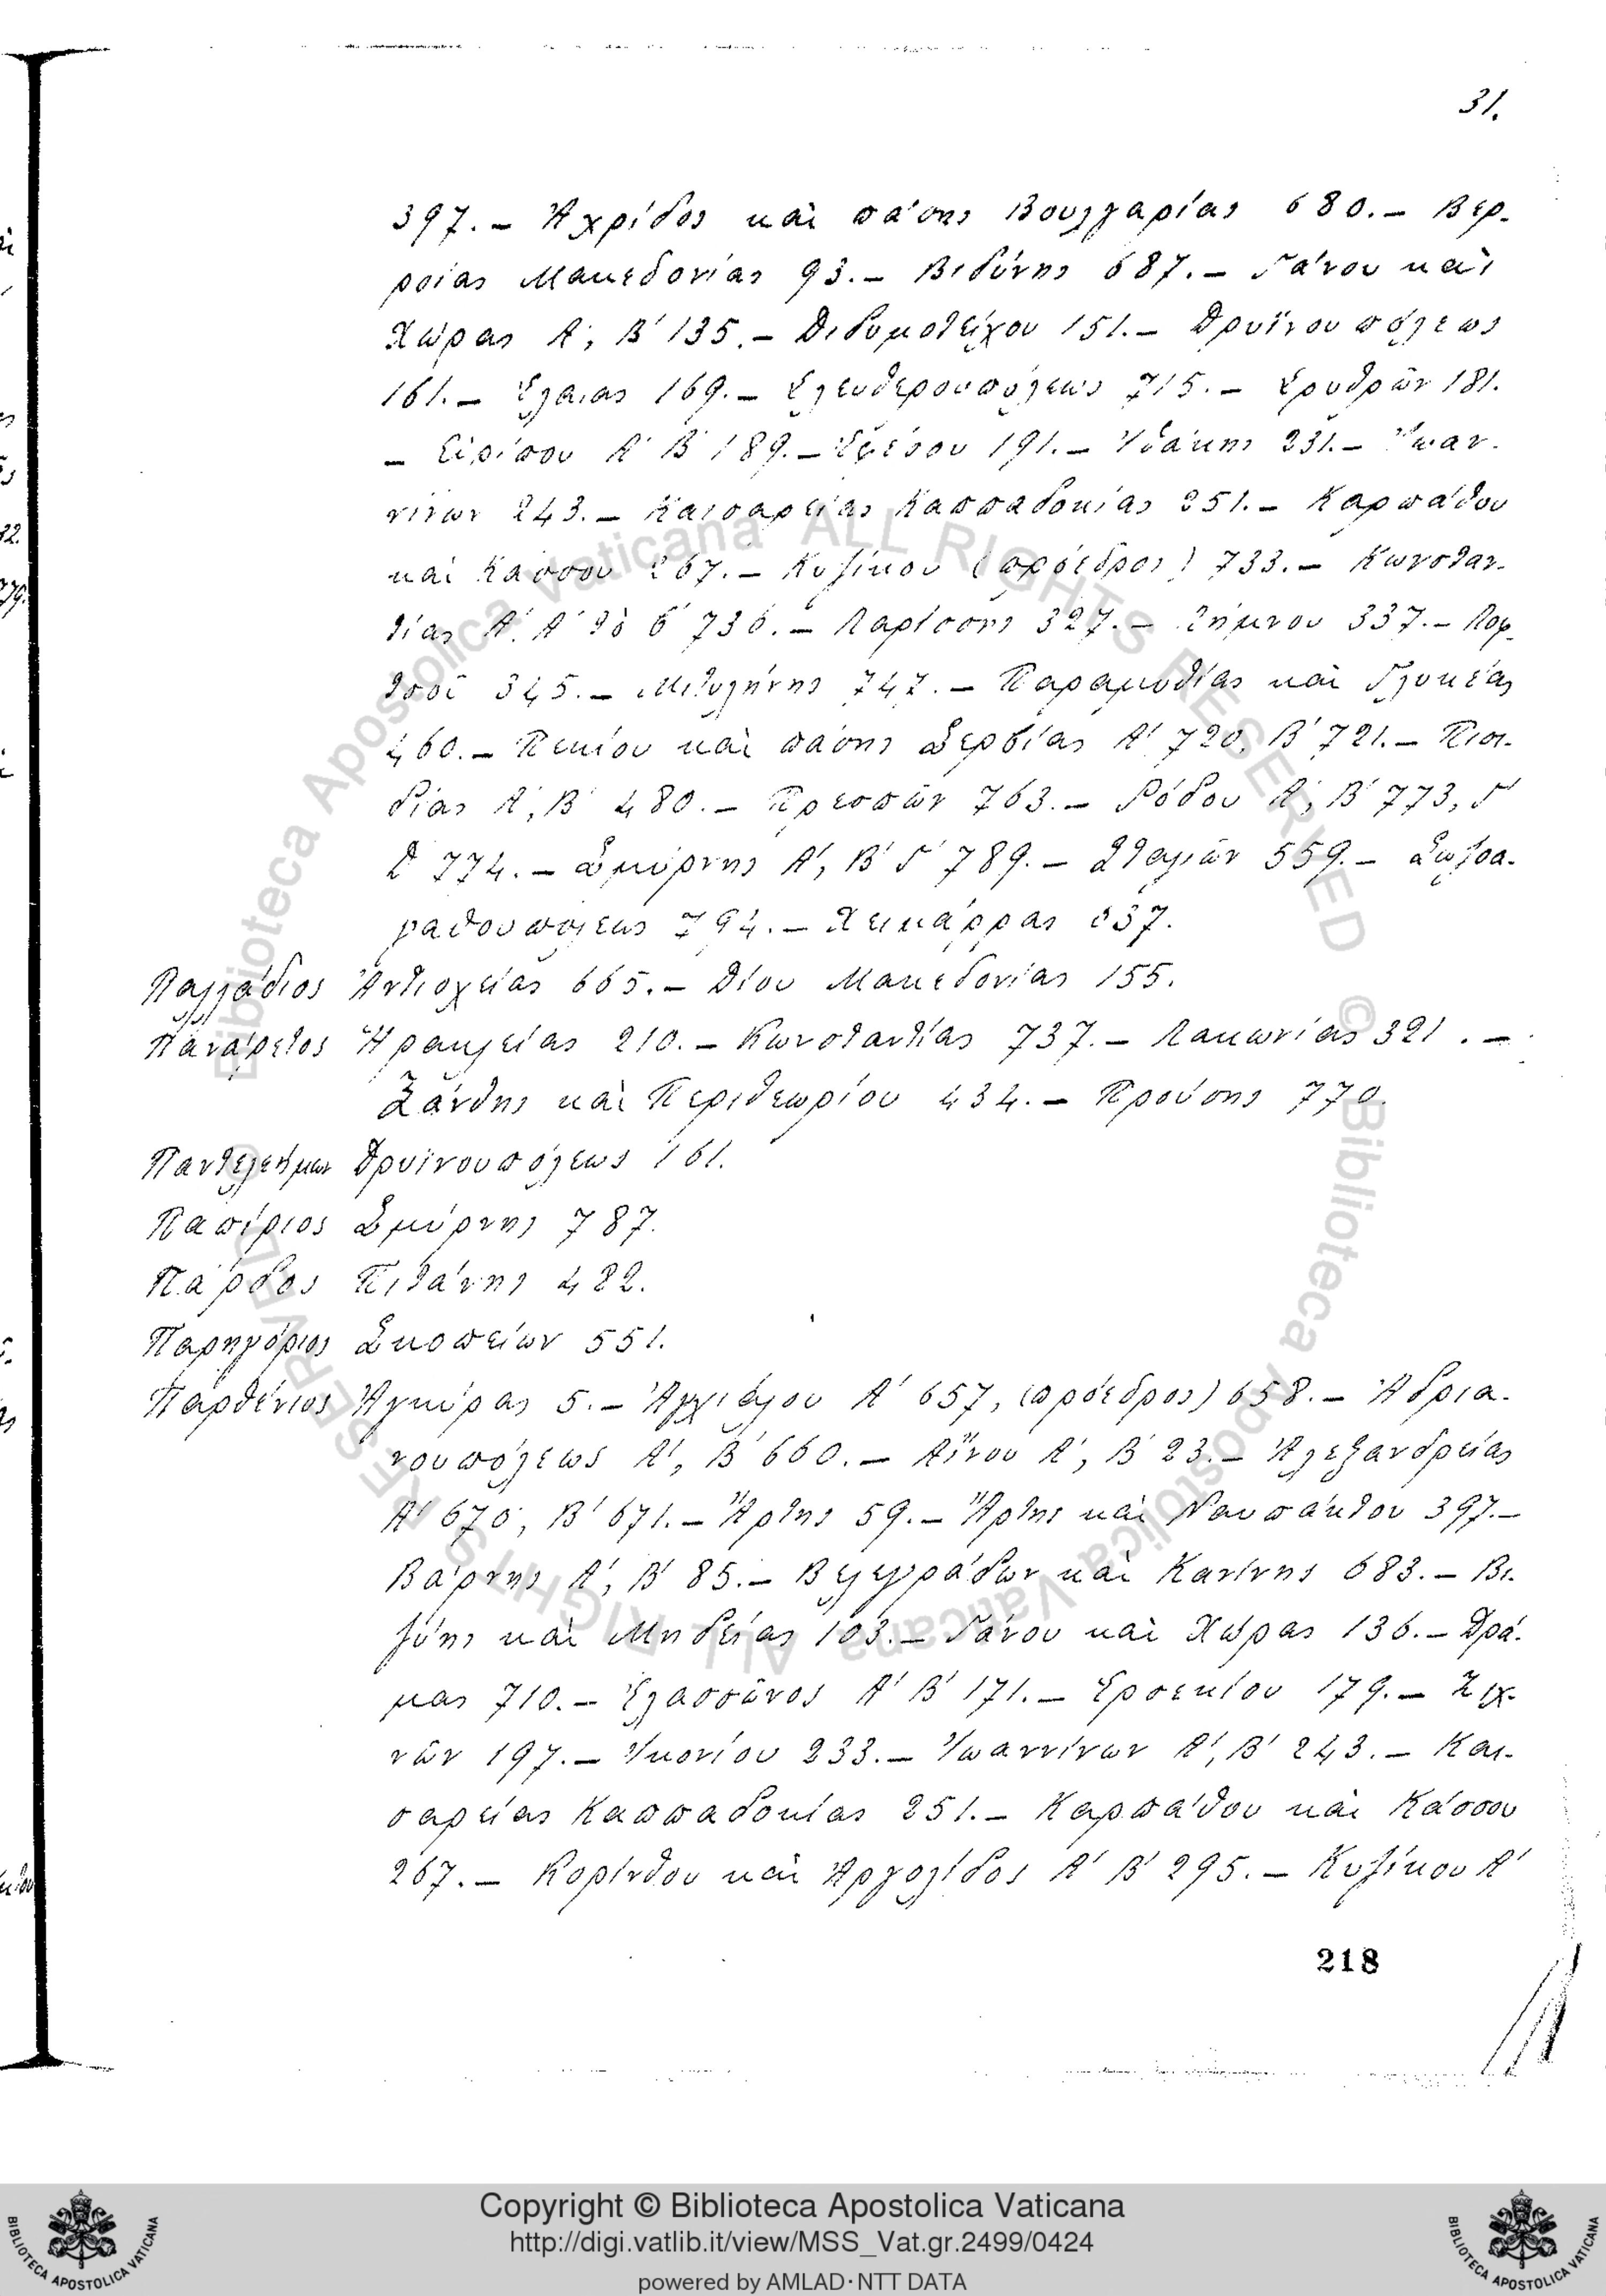 31.
397. – Ἀχρίδος καὶ πάσης Βουλγαρίας 680. – Βερ-
ροίας Μακεδονίας 93. – Βιδύνης 687. – Γάνου καὶ
Χώρας Α΄, Β΄ 135. – Διδυμοτείχου 151. – Δρυϊνουπόλεως
161. – Ἐλαίας 169. – Ἐλευθερουπόλεως 715. – Ἐρυθρῶν 181.
– Εὐρίπου Α΄ Β΄ 189. – Ἐφέσου 191. – Ἰθάκης 231. – Ἰωαν-
νίνων 243. – Καισαρείας Καππαδοκίας 251. – Καρπάθου
καὶ Κάσσου 267. – Κυζίκου (πρόεδρος) 733. – Κωνσταν-
τίας Α΄. Α΄ τὸ β΄ 736. – Λαρίσσης 327. – Λήμνου 337. – Λοφ-
τσοῦ 345. – Μιτυλήνης 747. – Παραμυθίας καὶ Γλυκέας
460. – Πεκίου καὶ πάσης Σερβίας Α΄ 720, Β΄ 721. – Πισι-
δίας Α΄, Β΄ 480. – Πρεσπῶν 763. – Ῥόδου Α΄, Β΄ 773, Γ΄
Δ΄ 774. – Σμύρνης Α΄, Β΄ Γ΄ 789. – Σταγῶν 559. – Σωζοα-
γαθουπόλεως 794. – Χειμάρρας 637.
Παλλάδιος Ἀντιοχείας 665. – Δίου Μακεδονίας 155.
Πανάρετος Ἡρακλείας 210. – Κωνσταντίας 737. – Λακωνίας 321. –
Ξάνθης καὶ Περιθεωρίου 434. – Προύσης 770.
Παντελεήμων Δρυϊνουπόλεως 161.
Παπίριος Σμύρνης 787.
Πάρδος Πιτάνης 482.
Παρηγόριος Σκοπείων 551.
Παρθένιος Ἀγκύρας 5. – Ἀγχιάλου Α΄ 657, (πρόεδρος) 658. – Ἀδρια-
νουπόλεως Α΄, Β΄ 660. – Αἴνου Α΄, Β΄ 23. – Ἀλεξανδρείας
Α΄ 670, Β΄ 671. – Ἄρτης 59. – Ἄρτης καὶ Ναυπάκτου 397. –
Βάρνης Α΄, Β΄ 85. – Βελεγράδων καὶ Κανίνης 683. – Βι-
ζύης καὶ Μηδείας 103. – Γάνου καὶ Χώρας 136. – Δρά-
μας 710. – Ἐλασσῶνος Α΄ Β΄ 171. – Ἐρσεκίου 179. – Ζιχ-
νῶν 197. – Ἰκονίου 233. – Ἰωαννίνων Α΄, Β΄ 243. – Και-
σαρείας Καππαδοκίας 251. – Καρπάθου καὶ Κάσσου
267. – Κορίνθου καὶ Ἀργολίδος Α΄ Β΄ 295. – Κυζίκου Α΄
218
© Biblioteca Apostolica Vaticana ALL RIGHTS RESERVED
© Biblioteca Apostolica Vaticana ALL RIGHTS RESERVED
Copyright © Biblioteca Apostolica Vaticana
http://digi.vatlib.it/view/MSS_Vat.gr.2499/0424
powered by AMLAD·NTT DATA
BIBLIOTECA APOSTOLICA VATICANA
BIBLIOTECA APOSTOLICA VATICANA